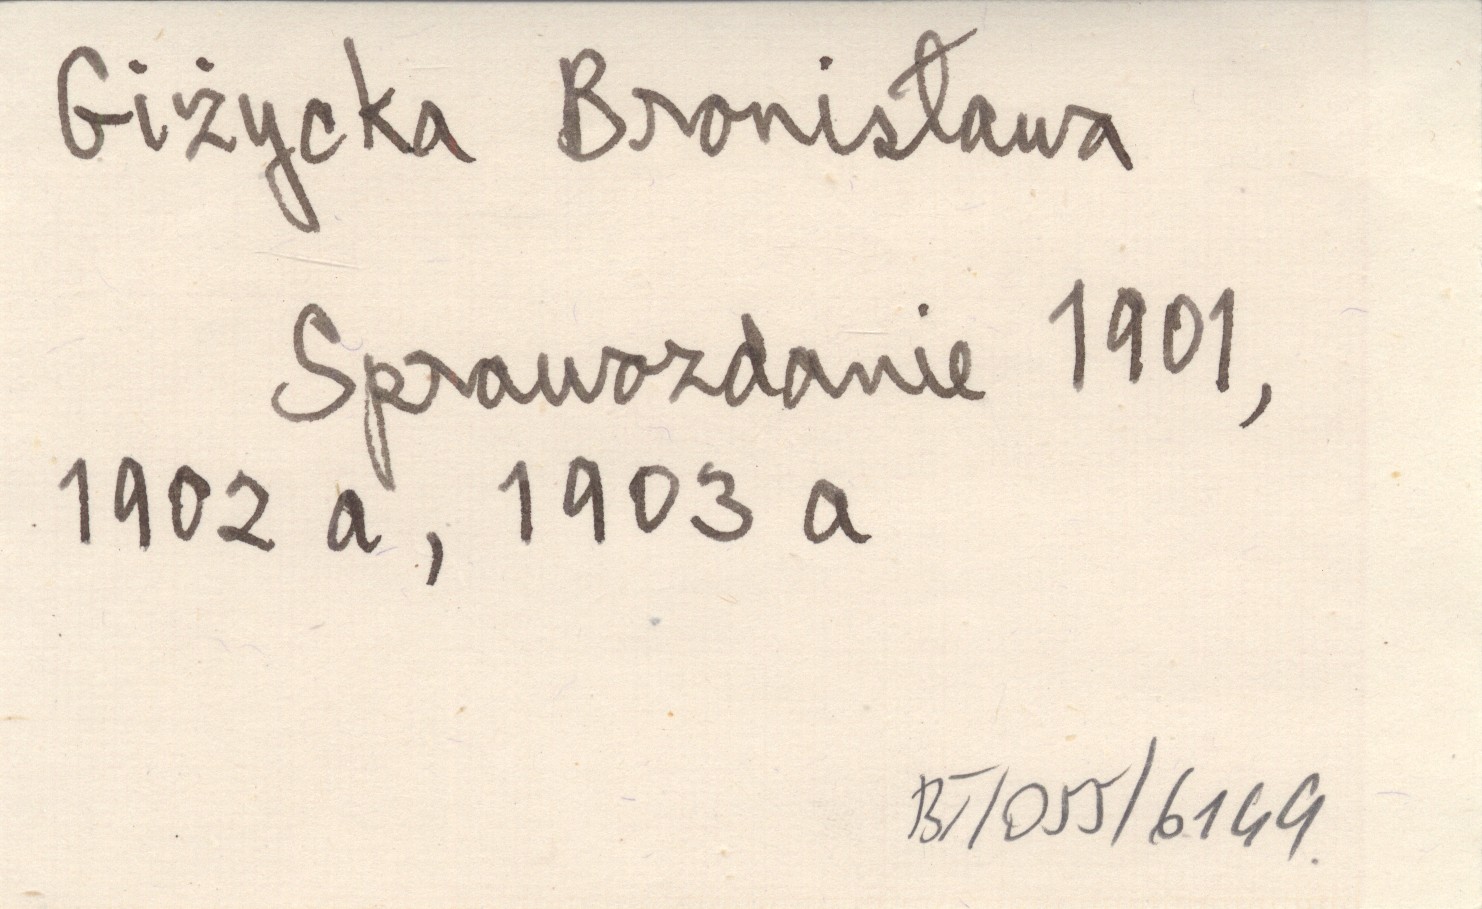 Giżycka Bronisława
Sprawozdanie 1901,
1902 a, 1903 a
BT/055/6149.